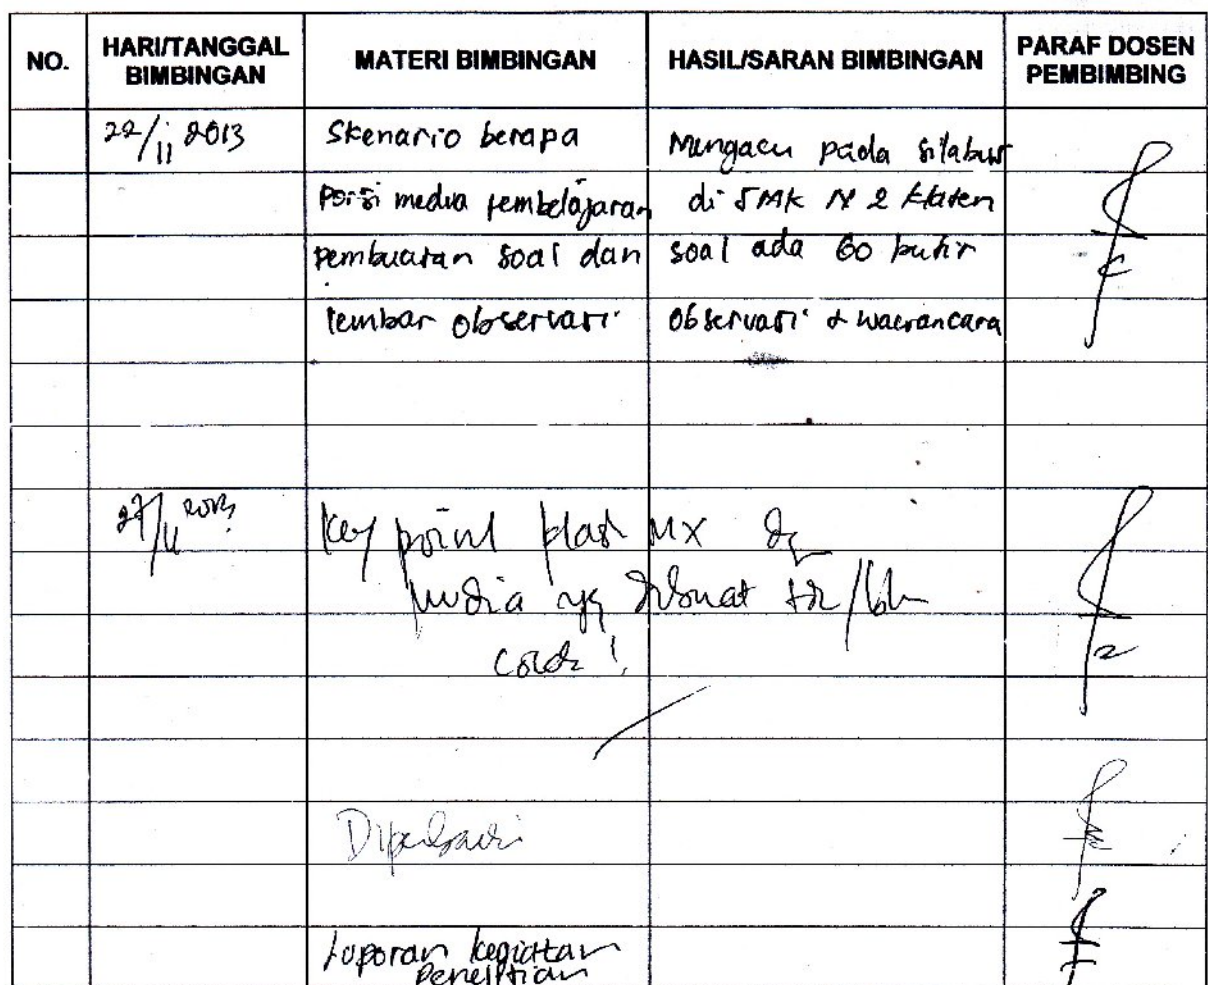 NO. HARI/TANGGAL BIMBINGAN MATERI BIMBINGAN HASIL/SARAN BIMBINGAN PARAF DOSEN PEMBIMBING
22/11 2013 Skenario berapa Mengacu pada silabus
porsi media pembelajaran di SMK N 2 Klaten
pembuatan soal dan soal ada 60 butir
lembar observasi observasi & wawancara
27/11 2013 Key point flash MX dg
media yg dibuat
Diperbaiki
Laporan kegiatan
penelitian